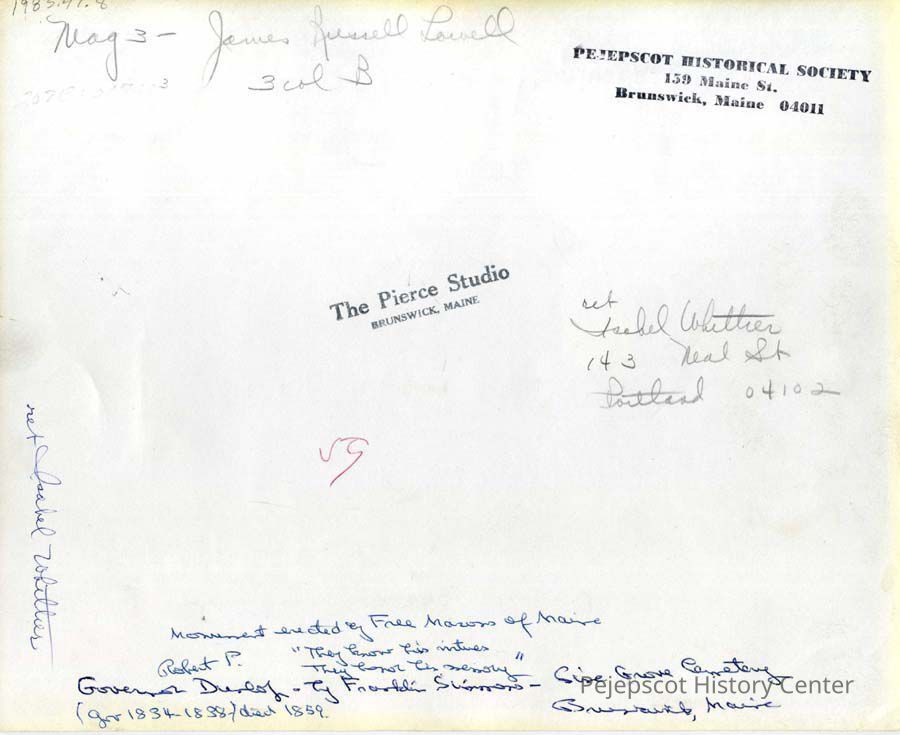 1985.47.8
Mag 3 - James Russell Lowell
3 col B
PEJEPSCOT HISTORICAL SOCIETY
159 Maine St.
Brunswick, Maine 04011
The Pierce Studio
BRUNSWICK, MAINE
ret
Isabel Whittier
143 Neal St
Portland 04102
ret Isabel Whittier
Monument erected by Free Masons of Maine
"They know his virtues
They honor his memory"
Robert P.
Governor Dunlop - by Franklin Simmons - Pine Grove Cemetery
(gov 1834-1838/died 1859.
Brunswick, Maine
Pejepscot History Center